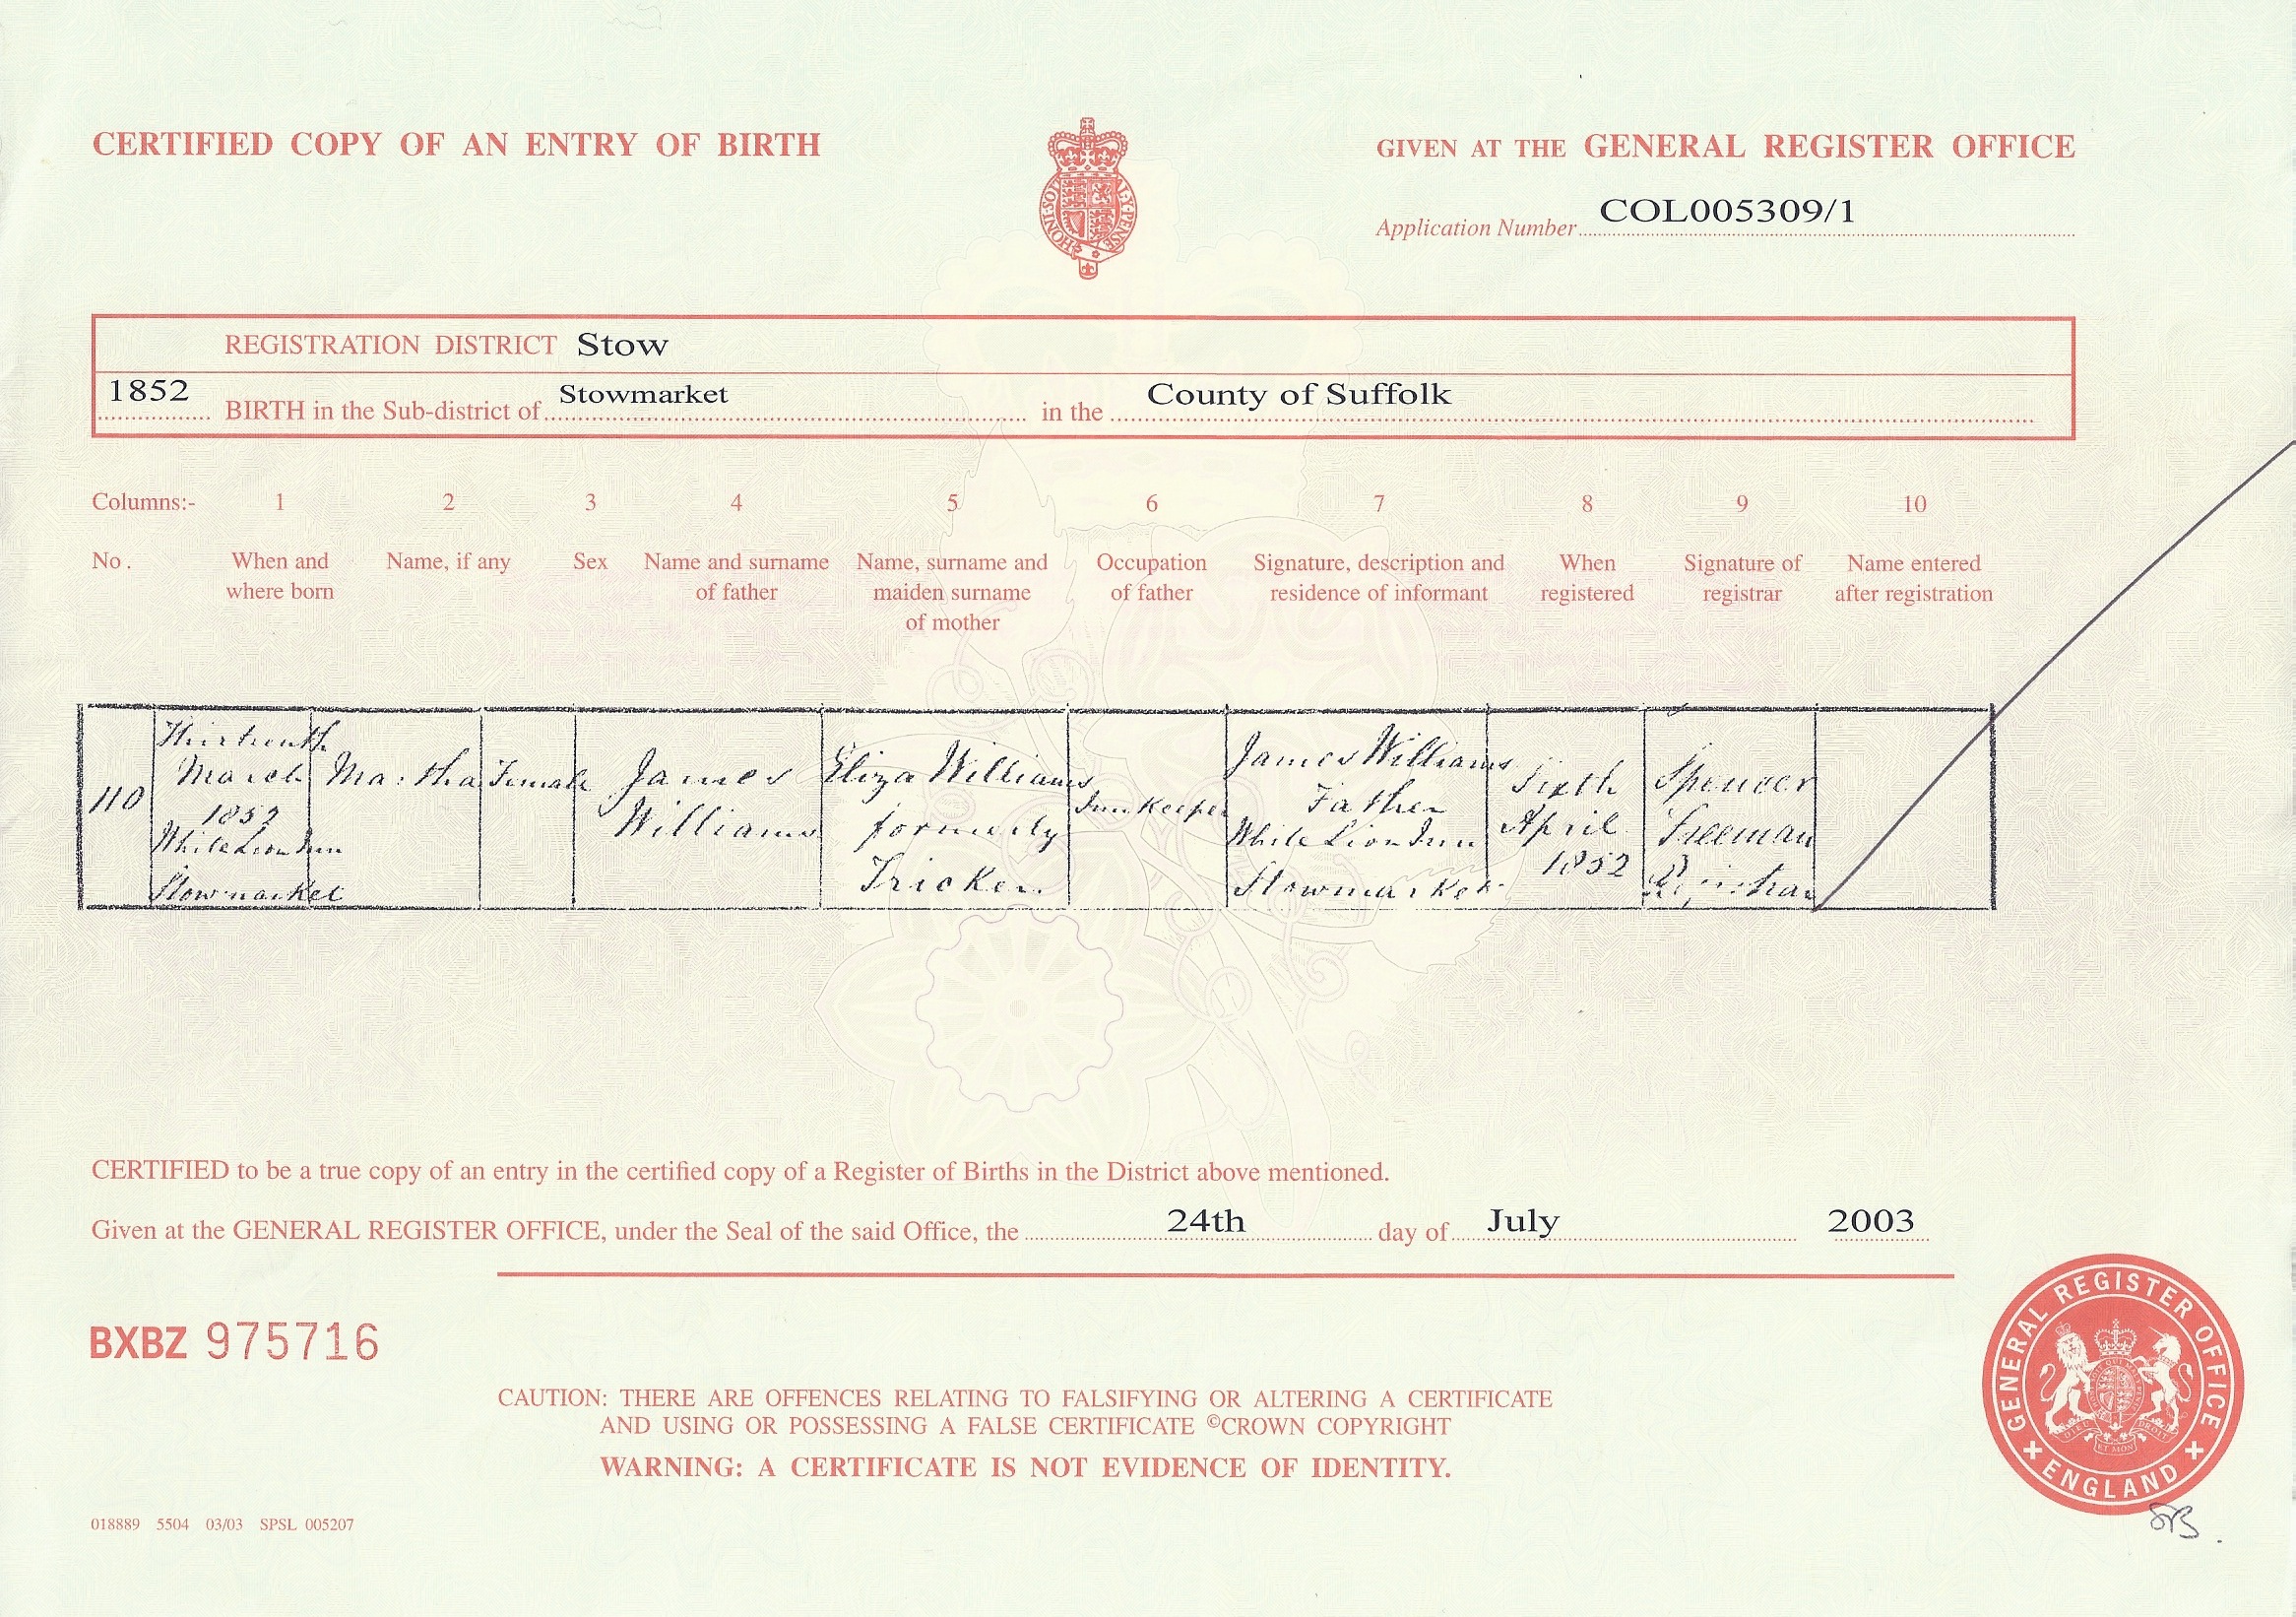 CERTIFIED COPY OF AN ENTRY OF BIRTH
GIVEN AT THE GENERAL REGISTER OFFICE
Application Number COL005309/1
REGISTRATION DISTRICT Stow
1852 BIRTH in the Sub-district of Stowmarket in the County of Suffolk
Columns:- 1 2 3 4 5 6 7 8 9 10
No. When and where born
Name, if any
Sex
Name and surname of father
Name, surname and maiden surname of mother
Occupation of father
Signature, description and residence of informant
When registered
Signature of registrar
Name entered after registration
110
Thirteenth
March
1852
White Lion Inn
Stowmarket
Martha
Female
James
Williams
Eliza Williams
formerly
Tricker
Inn Keeper
James Williams
Father
White Lion Inn
Stowmarket
Sixth
April
1852
Spencer
Freeman
Registrar
CERTIFIED to be a true copy of an entry in the certified copy of a Register of Births in the District above mentioned.
Given at the GENERAL REGISTER OFFICE, under the Seal of the said Office, the 24th day of July 2003
BXBZ 975716
CAUTION: THERE ARE OFFENCES RELATING TO FALSIFYING OR ALTERING A CERTIFICATE
AND USING OR POSSESSING A FALSE CERTIFICATE ©CROWN COPYRIGHT
WARNING: A CERTIFICATE IS NOT EVIDENCE OF IDENTITY.
GENERAL REGISTER OFFICE
ENGLAND
018889 5504 03/03 SPSL 005207